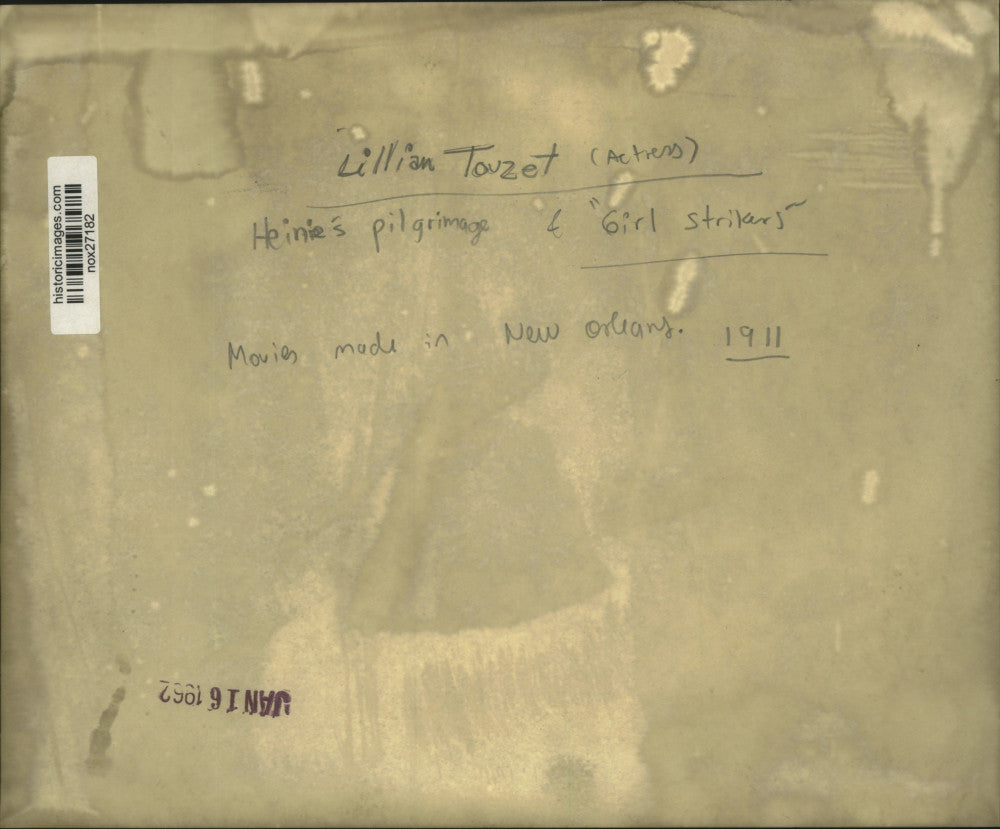 Lillian Touzet (Actress)
Heinie's pilgrimage & "Girl strikers"
Movies made in New Orleans. 1911
historicimages.com
nox27182
JAN 16 1962